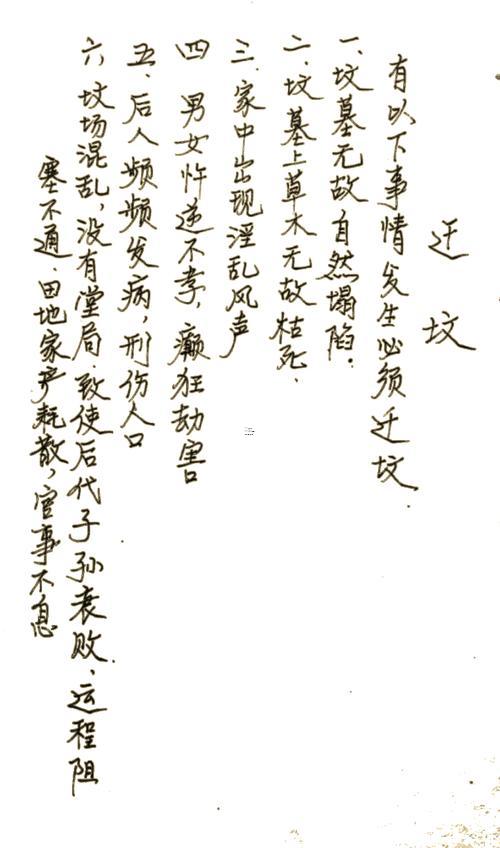 迁坟
有以下事情发生必须迁坟.
一、坟墓无故自然塌陷.
二、坟墓上草木无故枯死.
三.家中出现淫乱风声
四 男女忤逆不孝,癫狂劫害
五、后人频频发病,刑伤人口
六、坟场混乱,没有堂局.致使后代子孙衰败、运程阻
塞不通.田地家产耗散,官事不息